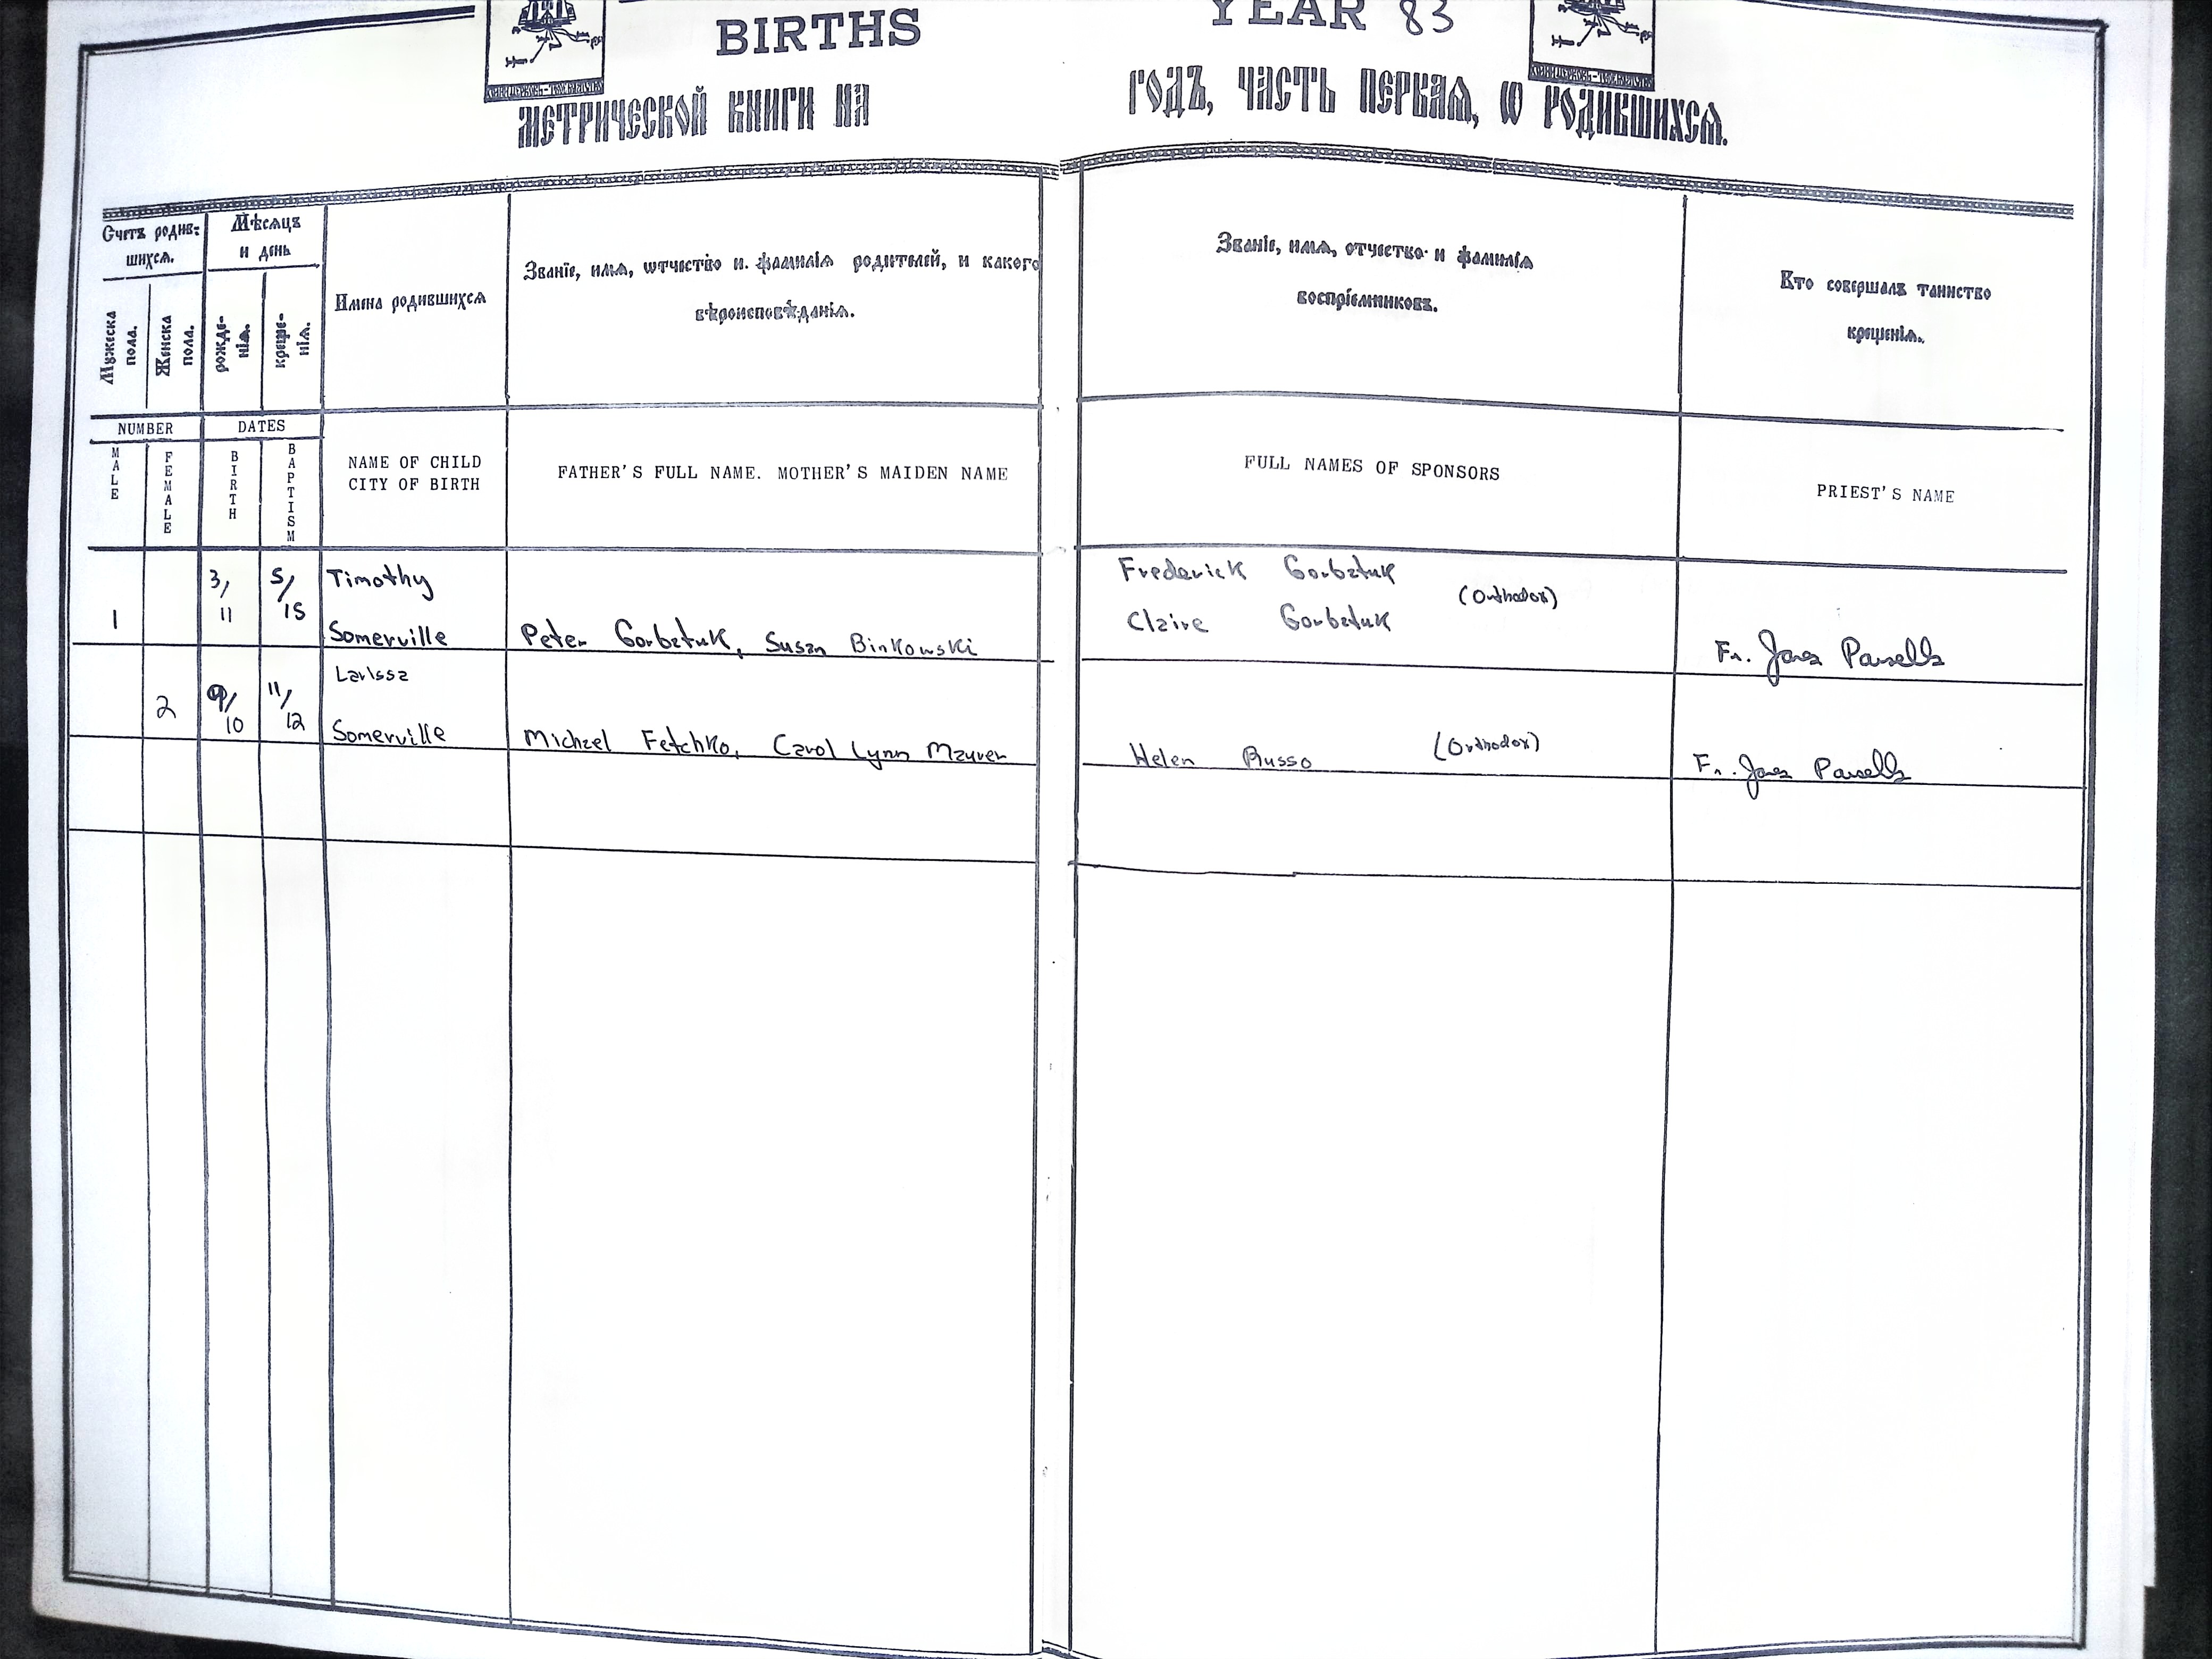 BIRTHS YEAR 83
МЕТРИЧЕСКОЙ КНИГИ НА ГОДЪ, ЧАСТЬ ПЕРВАѦ, Ѡ РОДИВШИХСѦ.
Счетъ родив-
шихсѧ.
Мѣсѧцъ
и день
Мужеска
пола.
Женска
пола.
рожде-
нїѧ.
креще-
нїѧ.
Имена родившихсѧ
Званїе, имѧ, ѡтчество и фамилїѧ родителей, и какого
вѣроисповѣданїѧ.
Званїе, имѧ, отчество и фамилїѧ
воспрїемниковъ.
Кто совершалъ таинство
крещенїѧ.
NUMBER
DATES
MALE
FEMALE
BIRTH
BAPTISM
NAME OF CHILD
CITY OF BIRTH
FATHER'S FULL NAME. MOTHER'S MAIDEN NAME
FULL NAMES OF SPONSORS
PRIEST'S NAME
1
3/
11
5/
15
Timothy
Somerville
Peter Gorbatuk, Susan Binkowski
Frederick Gorbatuk
(Orthodox)
Claire Gorbatuk
Fr. James Parsells
2
9/
10
11/
12
Larissa
Somerville
Michael Fetchko, Carol Lynn Maurer
Helen Russo (Orthodox)
Fr. James Parsells